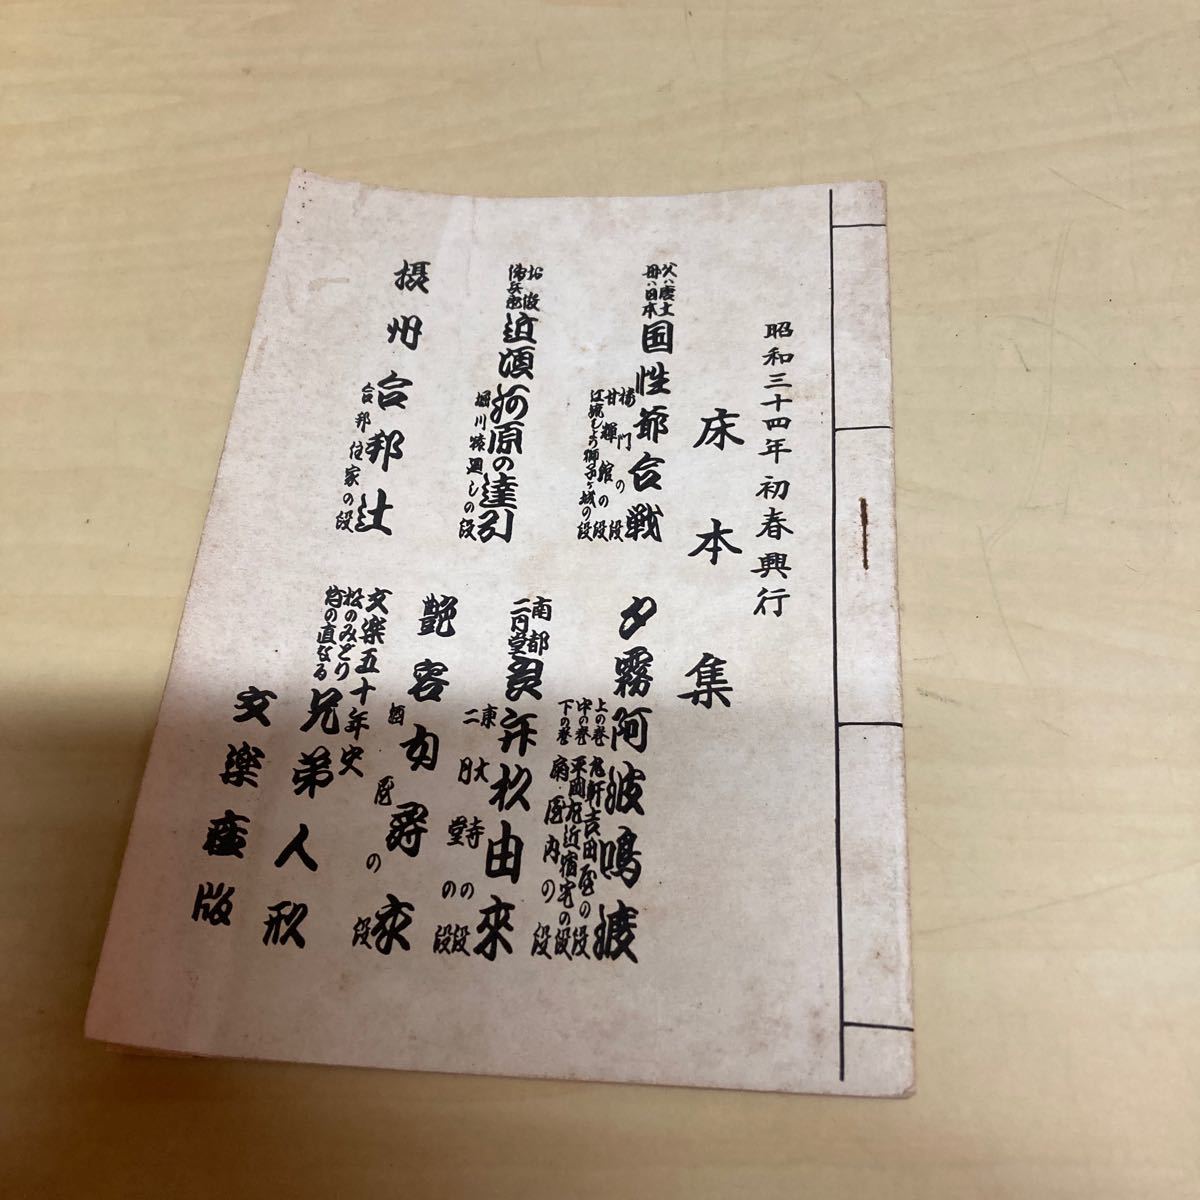 昭和三十四年初春興行
床本集
父ハ唐土
母ハ日本
国性爺合戦
楼門の段
甘輝館の段
紅流しより獅子ヶ城の段
お俊
伝兵衛
近頃河原の達引
堀川猿廻しの段
摂州合邦辻
合邦住家の段
夕霧阿波鳴渡
上の巻 九軒吉田屋の段
中の巻 平岡左近宿宅の段
下の巻 扇屋内の段
南都
二月堂
良弁杉由来
東大寺の段
二月堂の段
艶容女舞衣
酒屋の段
文楽五十年史
松のみどり
竹の直なる
兄弟人形
文楽座版